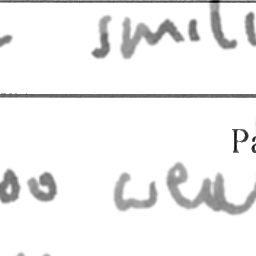 smil
Pa
oo wea